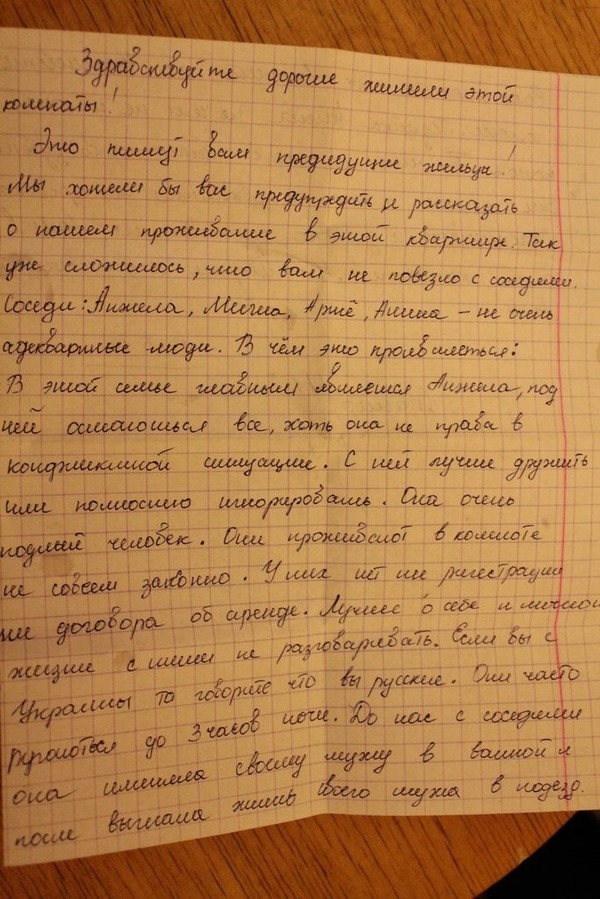 Здравствуйте дорогие жители этой
комнаты!
Это пишут вам предидущие жильци!
Мы хотели бы вас предупредить и рассказать
о нашем проживание в этой квартире. Так
уже сложилось, что вам не повезло с соседями.
Соседи: Анжела, Миша, Артё, Алина – не очень
адекватные люди. В чём это проявляеться:
В этой семье главным является Анжела, под
ней остаються все, хоть она не права в
конфликтной ситуации. С ней лучше дружить
или полностью игнорировать. Она очень
подлый человек. Они проживают в комноте
не совсем законно. У них нет ни регистрации
ни договора об аренде. Лучше о себе и личной
жизни с ними не разговаревать. Если вы с
Украины то говорите что вы русские. Они часто
ругаються до 3 часов ночи. До нас с соседями
она своему мужу в ванной и
после выгнала жить своего мужа в подезд.